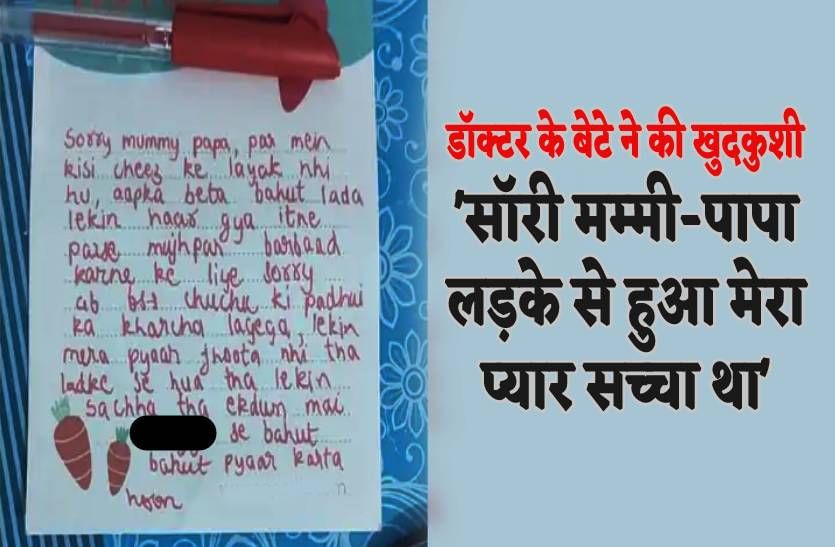 Sorry mummy papa, par mein
kisi cheez ke layak nhi
hu, aapka beta bahut lada
lekin haar gya itne
paise mujhpar barbaad
karne ke liye sorry
ab bst chuchu ki padhui
ka kharcha lagega, lekin
mera pyaar jhoota nhi tha
ladke se hua tha lekin
sachha tha ekdum mai
se bahut
bahut pyaar karta
hoon
डॉक्टर के बेटे ने की खुदकुशी
'सॉरी मम्मी-पापा
लड़के से हुआ मेरा
प्यार सच्चा था'